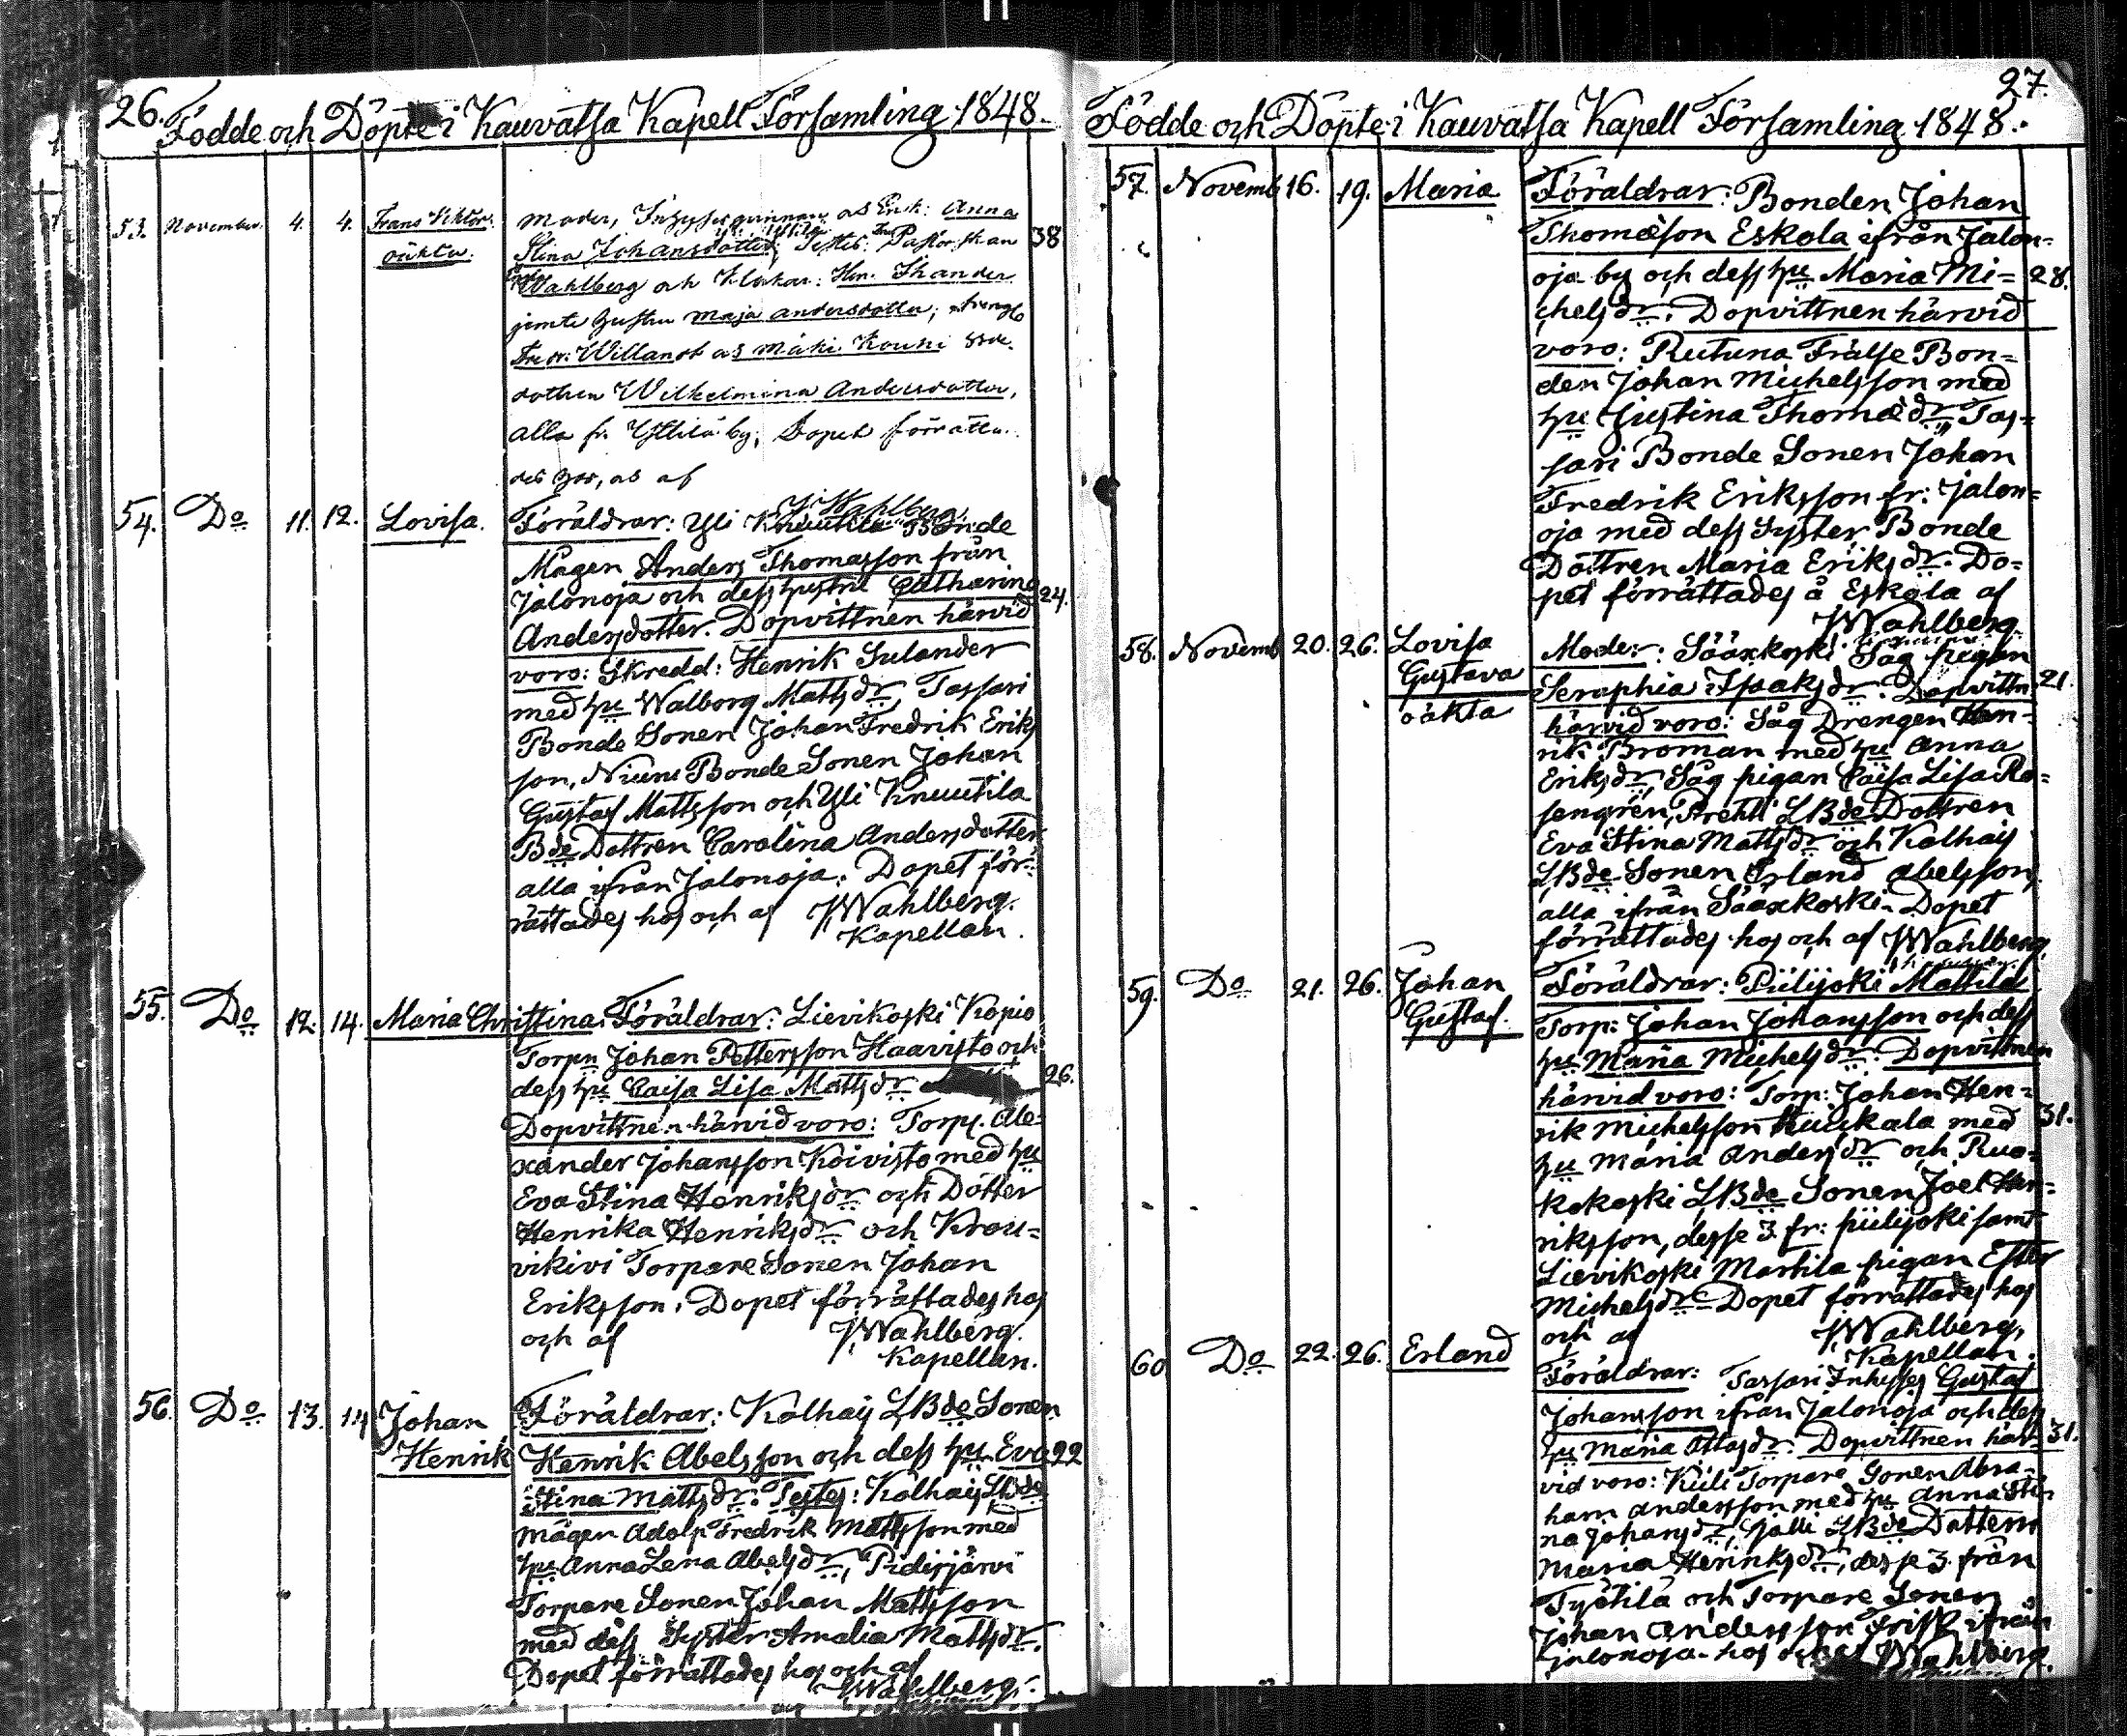 26. Födde och Döpte i Kauvatsa Kapell Församling 1848.
53. November. 4. 4. Frans Viktor
oäkta.
Moder, Inhysesqvinnan Anna
Stina Johansdotter; Testes: Pastorskan 38
Wahlberg och Klockar: Hen. Thander
jemte hustru Maja Andersdotter,
Fredr: Willandt Mäki Kouki
dottren Wilhelmina Andersdotter,
alla fr. Yttilä by; Dopet förrätta-
des hos, af
JWahlberg.
54. Do 11. 12. Lovisa.
Föräldrar: Yli Knuutila Bonde
Mågen Anders Thomasson från
Jalonoja och dess hustru Catharina 24.
Andersdotter. Dopvittnen härvid
voro: Skredd: Henrik Sulander
med hu Walborg Mattsdr, Tassari
Bonde Sonen Johan Fredrik Eriks
son, Niuni Bonde Sonen Johan
Gustaf Mattsson och Yli Knuutila
Bde Dottren Carolina Andersdotter
alla ifrån Jalonoja. Dopet för-
rättades hos och af JWahlberg.
Kapellan.
55. Do 12. 14. Maria Christina.
Föräldrar: Lievikoski Kopio
Torpn Johan Pettersson Haavisto och
dess hu Caisa Lisa Mattsdr 26.
Dopvittnen härvid voro: Torp. Ale-
xander Johansson Koivisto med hu
Eva Stina Henriksdr och Dotter
Henrika Henriksdr och Krou-
vikivi Torpare Sonen Johan
Eriksson. Dopet förrättades hos
och af JWahlberg.
Kapellan.
56. Do 13. 14 Johan
Henrik
Föräldrar: Kalhais LBde Sonen
Henrik Abelsson och dess hu Eva 22
Stina Mattsdr. Testes: Kalhais LBde
Mågen Adolf Fredrik Mattsson med
hu Anna Lena Abelsdr, Pidisjärvi
Torpare Sonen Johan Mattsson
med dess Syster Amalia Mattsdr.
Dopet förrättades hos och af
JWahlberg.
27.
Födde och Döpte i Kauvatsa Kapell Församling 1848.
57. Novemb 16. 19. Maria
Föräldrar: Bonden Johan
Thomæson Eskola ifrån Jalon-
oja by och dess hu Maria Mi- 28.
chelsdr. Dopvittnen härvid
voro: Rutuna Frälse Bon-
den Johan Michelsson med
hu Justina Thomædr, Tas-
sari Bonde Sonen Johan
Fredrik Eriksson fr: Jalon-
oja med dess Syster Bonde
Dottren Maria Eriksdr. Do-
pet förrättades å Eskola af
JWahlberg
58. Novemb 20. 26. Lovisa
Gustava
oäkta
Moder: Sääxkoski Såg pigan
Seraphia Isaaksdr. Dopvittn 21.
härvid voro: Såg Drengen Hen-
rik Broman med hu Anna
Eriksdr, Såg pigan Caisa Lisa Ro-
sengrén, Prehti LBde Dottren
Eva Stina Mattsdr och Kalhais
LBde Sonen Erland Abelsson,
alla ifrån Sääxkoski. Dopet
förrättades hos och af JWahlberg.
59. Do 21. 26. Johan
Gustaf.
Föräldrar: Piilijoki Mattila
Torp: Johan Johansson och dess
hu Maria Michelsdr. Dopvittnen
härvid voro: Torp: Johan Hen-
rik Michelsson Kuukala med 31.
hu Maria Andersdr och Ruo-
kokoski LBde Sonen Joel Hen-
riksson, desse 3 fr: Piilijoki samt
Lievikoski Martila pigan Ester
Michelsdr. Dopet förrättades hos
och af JWahlberg,
Kapellan.
60. Do 22. 26. Erland
Föräldrar: Tassari Inhyses Gustaf
Johansson ifrån Jalonoja och dess
hu Maria Ottosdr. Dopvittnen här- 31.
vid voro: Kuli Torpare Sonen Abra-
ham Andersson med hu Anna Sti-
na Johansdr, Sjalli LBde Dottern
Maria Henriksdr, desse 3 från
Työtilä och Torpare Sonen
Johan Andersson Frisk ifrån
Jalonoja. hos och af JWahlberg.